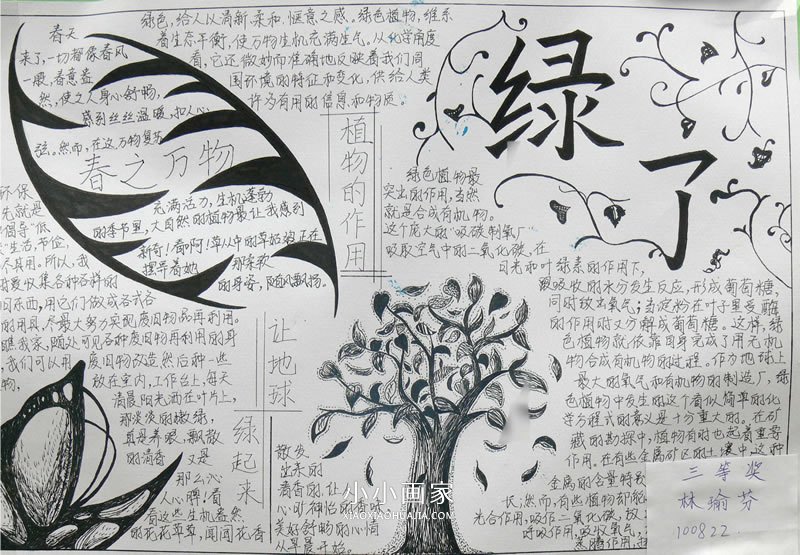 绿了
绿色,给人以清新、柔和、惬意之感。绿色植物,维系
着生态平衡,使万物生机充满生气。从化学角度
看,它还微妙而准确地反映着我们周
围环境的特征和变化,供给人类
许多有用的信息和物质。
春天
来了,一切都像春风
一般,春意盎
然,使之人身心舒畅,
感到丝丝温暖,扣人心
弦。然而,在这万物复苏
春之万物
充满活力,生机蓬勃
的季节里,大自然的植物最让我感到
新奇!看啊!草丛中的草姑娘正在
摆弄着她那柔软
的身姿,随风飘扬。
植物的作用
绿色植物最
突出的作用,当然
就是合成有机物。
这个庞大的“吸碳制氧厂
吸取空气中的二氧化碳,在
日光和叶绿素的作用下,
跟吸收的水分发生反应,形成葡萄糖,
同时放出氧气;当淀粉在叶子里受酶
的作用时又分解成葡萄糖。这样,绿
色植物就依靠自身完成了用无机
物合成有机物的过程。作为地球上
最大的氧气和有机物的制造厂,绿
色植物中发生的这个看似简单的化
学方程式的意义是十分重大的。在矿
藏的勘探中,植物有时也起着重要
作用。在有些金属矿区的土壤中,这种
金属的含量特
长;然而,有些植物却能
光合作用,吸收二氧化碳,放
呼吸作用,吸收氧气,
蒸腾作用,
让地球
绿起来
环保
先就是
倡导“低
”生活,节俭,
不具用。所以,我
要收集各种各样的
旧东西,用它们做成各式各
的用具,尽最大努力实现废旧物品再利用。
瞧我家,随处可见各种废旧物再利用的身
我们可以用废旧物改造然后种一些
物,放在室内,工作台上,每天
清晨阳光洒在叶片上,
那淡淡的嫩绿,
真是养眼,飘散
的清香又是
那么沁
人心脾!看
看这些生机盎然
的花花草草,闻闻花香
散发
出来的
清香的,让人
心旷神怡的香味,
美好舒畅的心情
从早晨开始。
三等奖
林瑜芬
100822.
小小画家
XIAOXIAOHUAJIA.COM